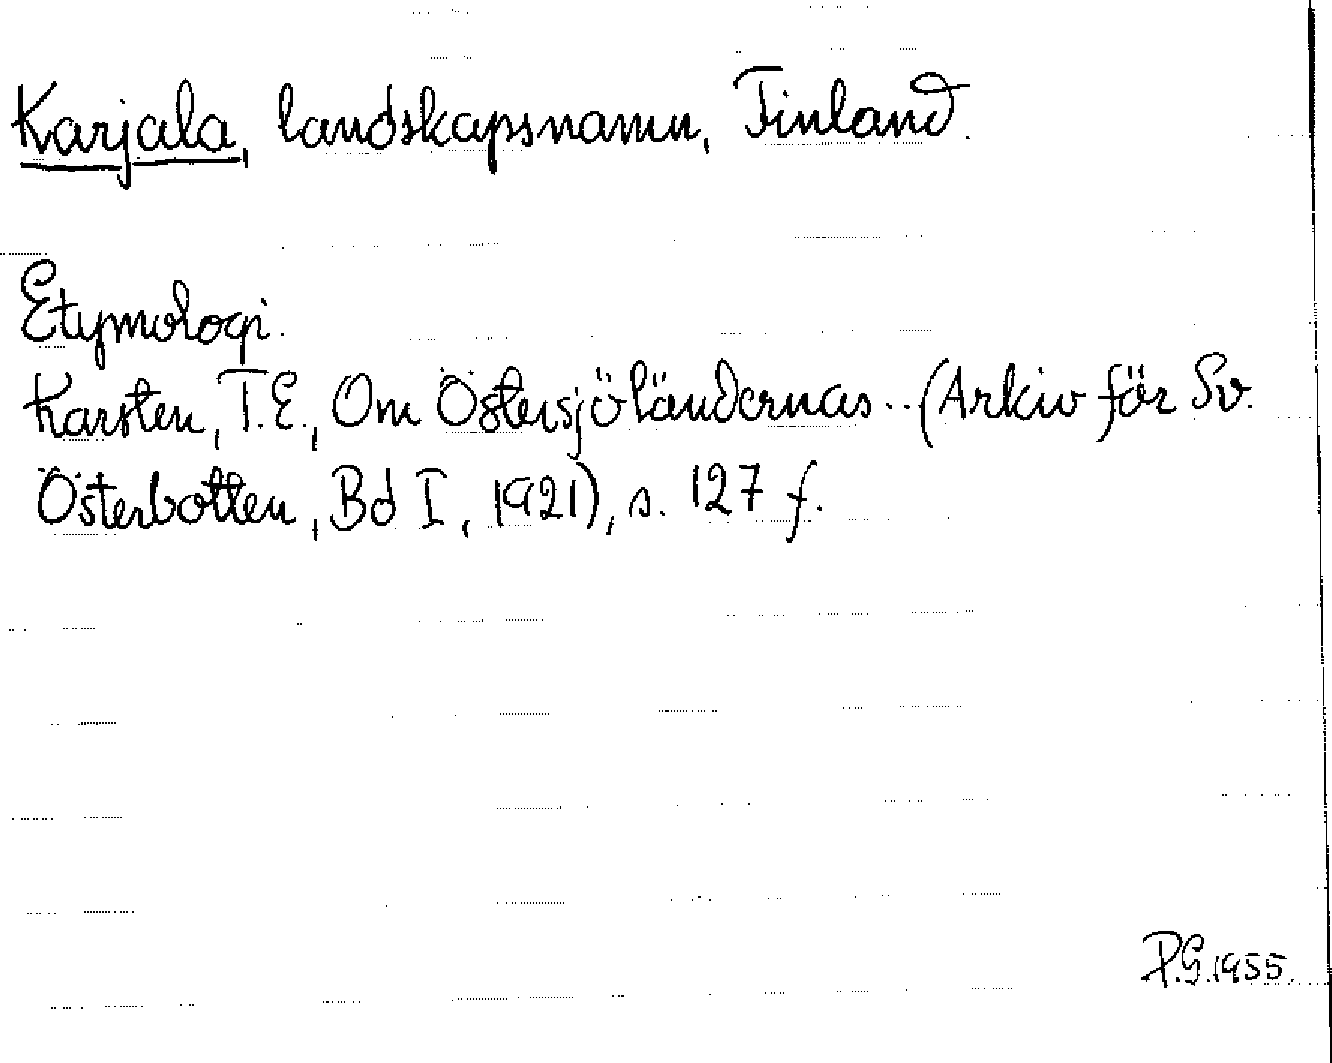 Karjala, landskapsnamn, Finland.
Etymologi.
Karsten, T.E., Om Östersjöländernas.. (Arkiv för Sv.
Österbotten, Bd I, 1921), s. 127 f.
P.G.1955.